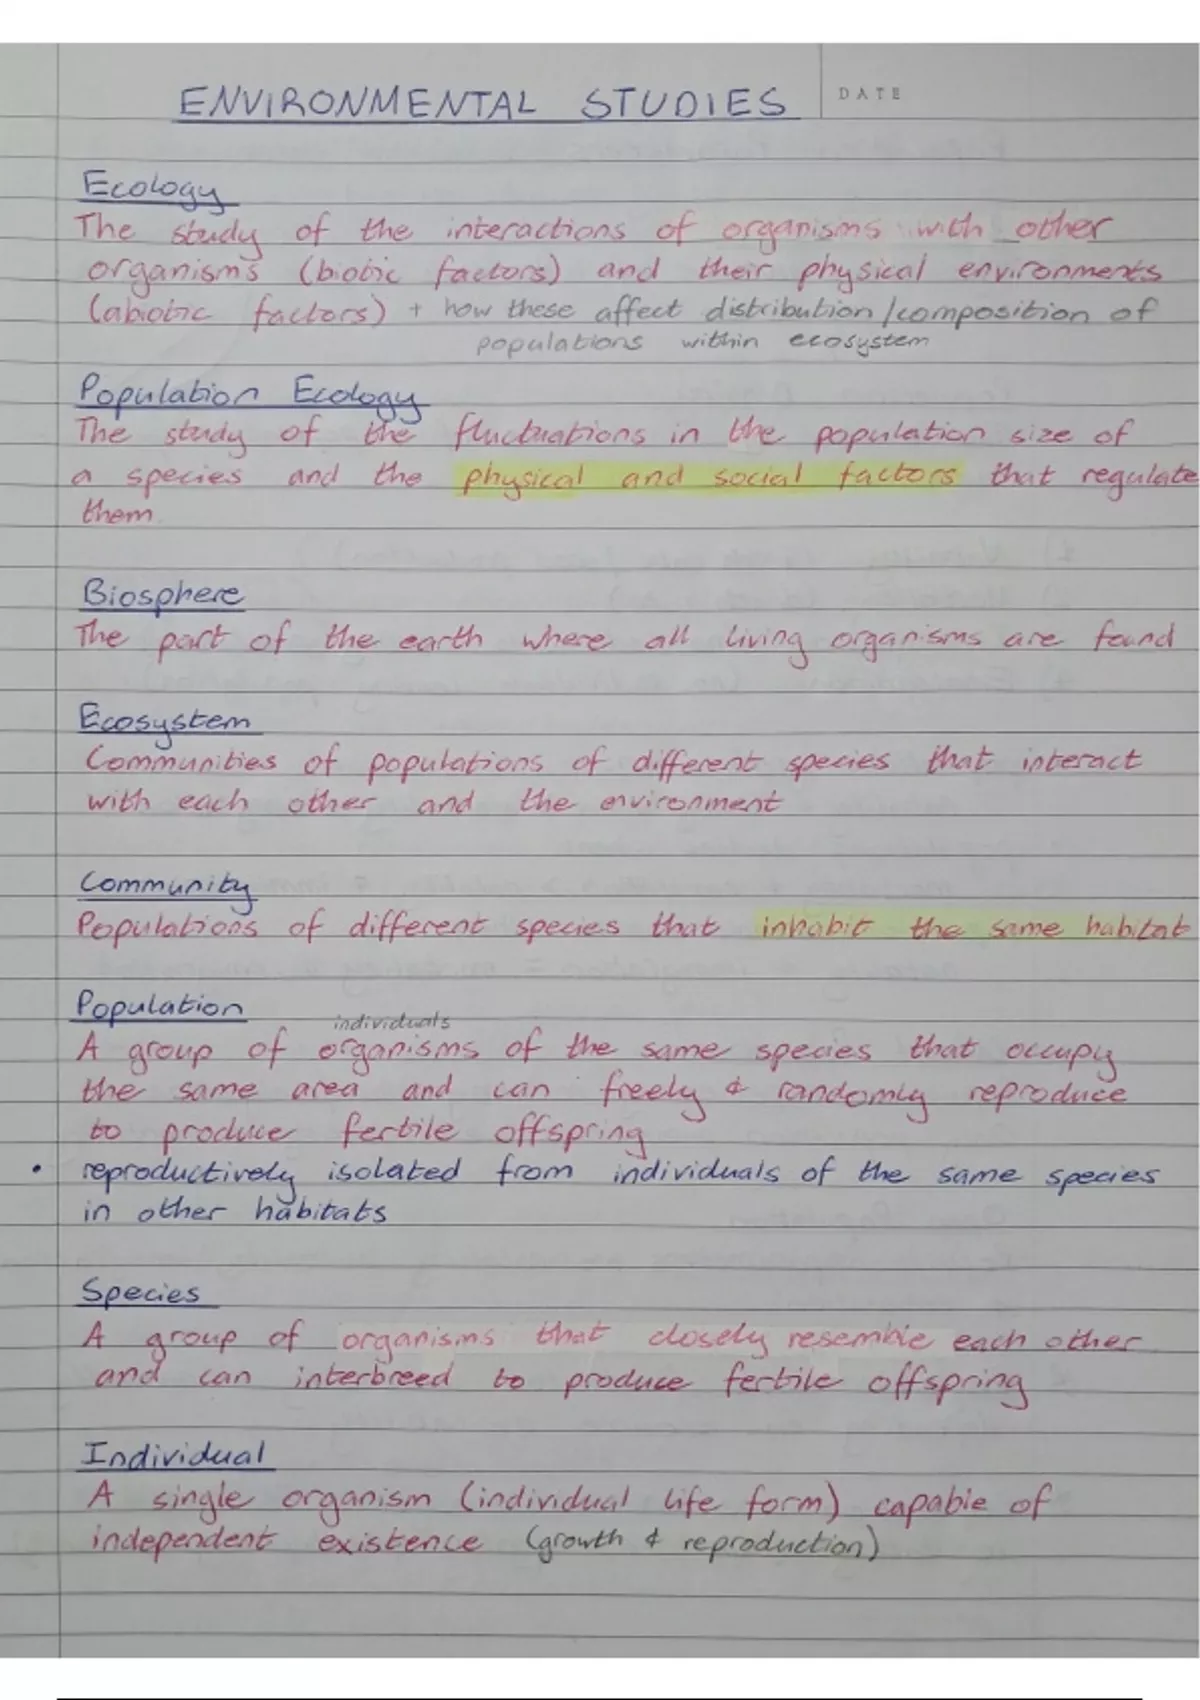 ENVIRONMENTAL STUDIES
DATE
Ecology
The study of the interactions of organisms with other
organisms (biotic factors) and their physical environments
(abiotic factors) + how these affect distribution/composition of
populations within ecosystem
Population Ecology
The study of the fluctuations in the population size of
a species and the physical and social factors that regulate
them
Biosphere
The part of the earth where all living organisms are found
Ecosystem
Communities of populations of different species that interact
with each other and the environment
Community
Populations of different species that inhabit the same habitat
Population
individuals
A group of organisms of the same species that occupy
the same area and can freely & randomly reproduce
to produce fertile offspring
• reproductively isolated from individuals of the same species
in other habitats
Species
A group of organisms that closely resemble each other
and can interbreed to produce fertile offspring
Individual
A single organism (individual life form) capable of
independent existence (growth & reproduction)